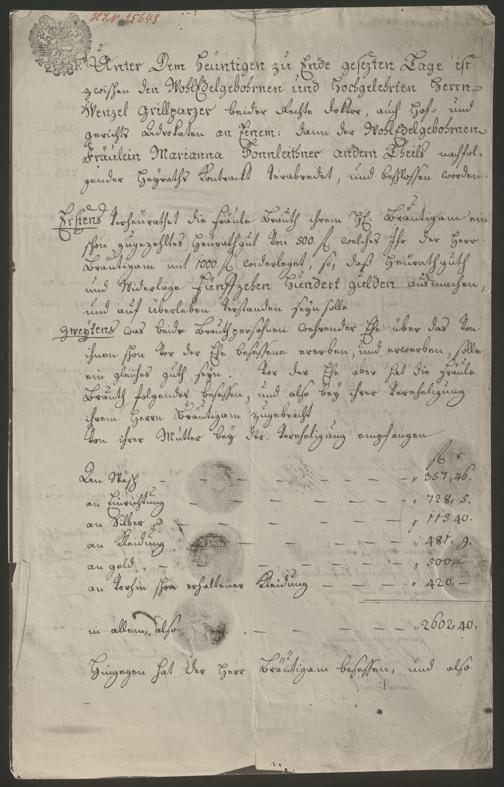 H.I.N. 25648
Unter Dem Heüntigen zu Ende gesezten Tage ist
zwischen den WohlEdelgebohrnen und Hochgelehrten Herrn
Wenzel Grillparzer beider Rechte Doktor, auch Hof- und
gerichts Advokaten an Einem: dann der WohlEdelgebohrnen
Fräulein Marianna Sonnleithner andern Theils nachfol-
gender Heyraths Kontrackt verabredet, und beschlossen worden.
Erstens verheürathet die Fräule Brauth ihrem H: Bräutigam ein
schon zugezehltes Heürathgut von 500. f welches Ihr der Herr
Bräutigam mit 1000. f widerleget, so, daß Heürathguth
und Widerlage Fünfzehen Hundert gulden ausmachen,
und auf überleben verstanden seyn solle
Zweytens was beide Brauthpersohnen wehrender Ehe über das von
ihnen schon vor der Ehe besessene ererben, und erwerben, solle
ein gleiches guth seyn. Vor der Ehe aber hat die Fräule
Brauth folgendes besessen, und also bey ihrer Verehligung
ihrem Herrn Bräutigam zugebracht
Von ihrer Mutter bey der Verehligung empfangen
f x
An Wäsch - - - - - - " 357.46.
an Einrichtung - - - - - " 728. 5.
an Silber - - - - - - " 115.40.
an Kleidung - - - - - " 481. 9.
an geld - - - - - - " 500.-
an vorhin schon erhaltener Kleidung - - - " 420.-
in allem, also - - - - - " 2602.40.
Hingegen hat der Herr Bräutigam besessen, und also